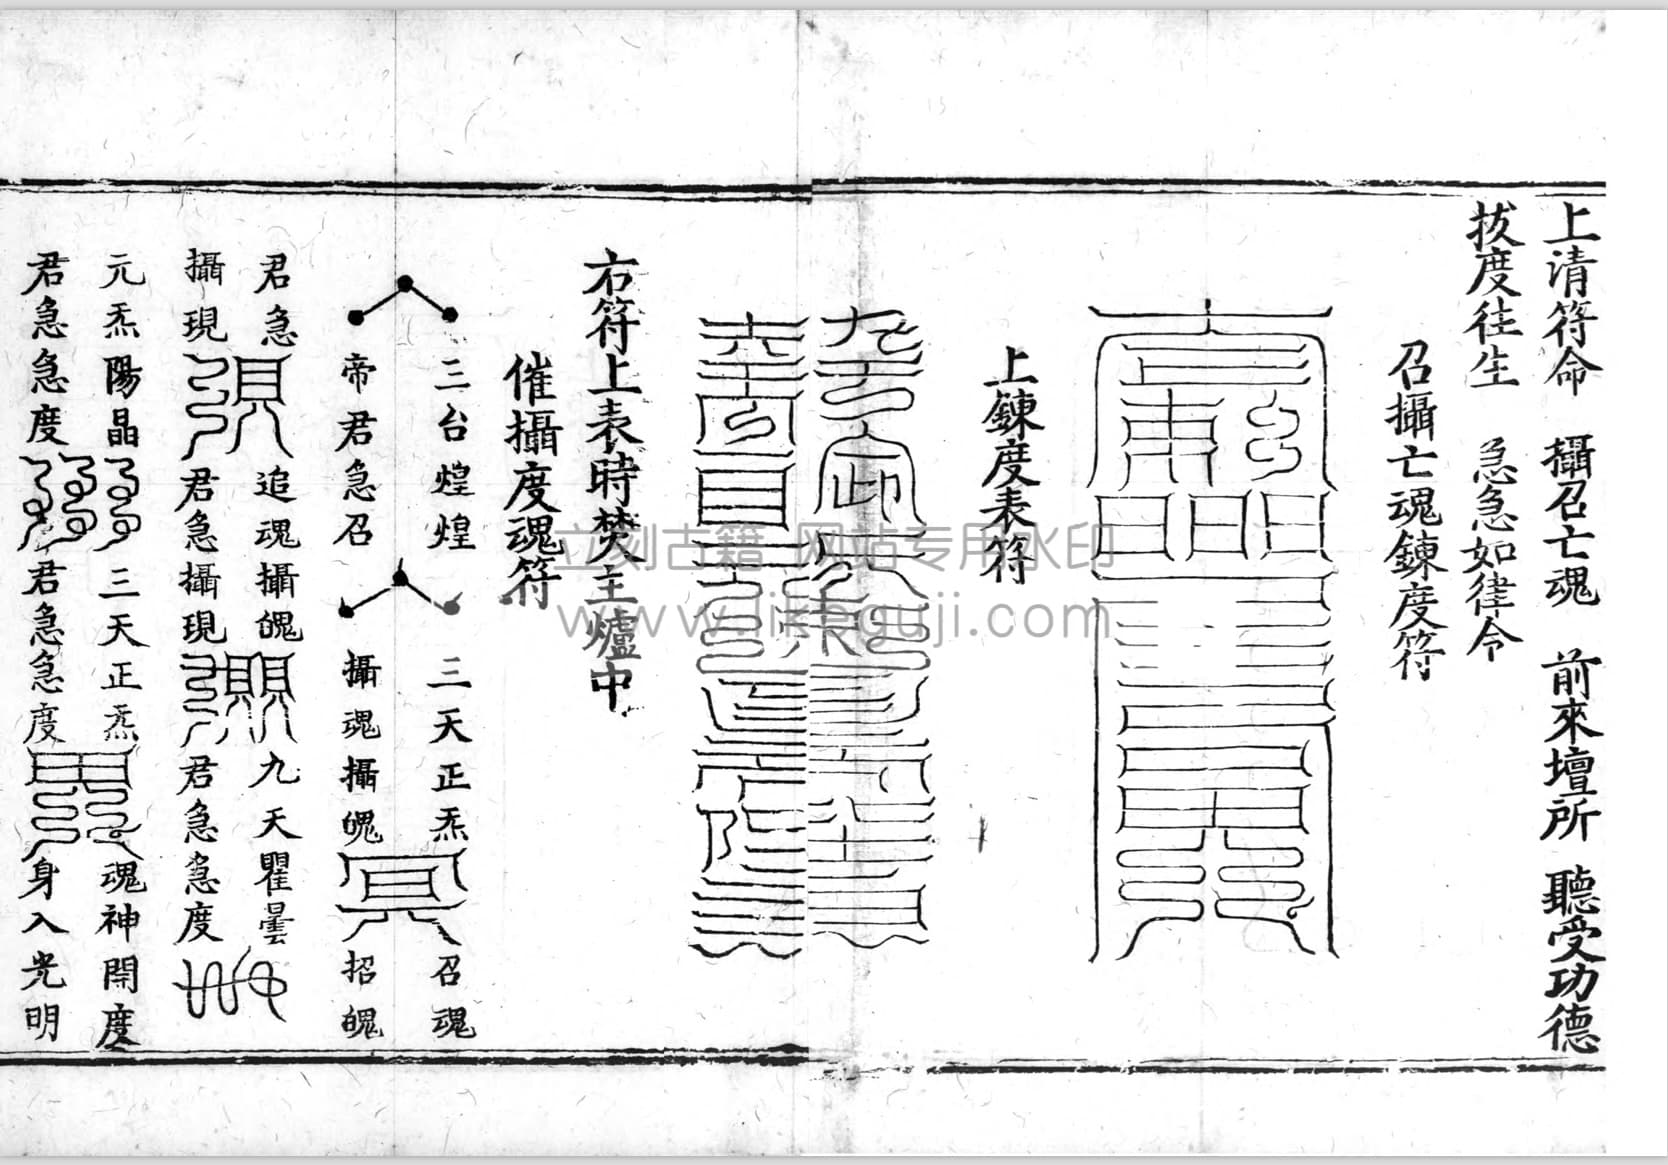 上清符命　攝召亡魂　前來壇所　聽受功德
拔度往生　急急如律令
召攝亡魂鍊度符
上鍊度表符
右符上表時焚主爐中
催攝度魂符
三台煌煌　三天正炁　召魂
帝君急召　攝魂攝魄　招魄
君急　追魂攝魄　九天瞿曇
攝現　君急攝現　君急急度
元炁陽晶　三天正炁　魂神開度
君急急度　君急急度　身入光明
立刻古籍 网站专用水印
www.likeguji.com